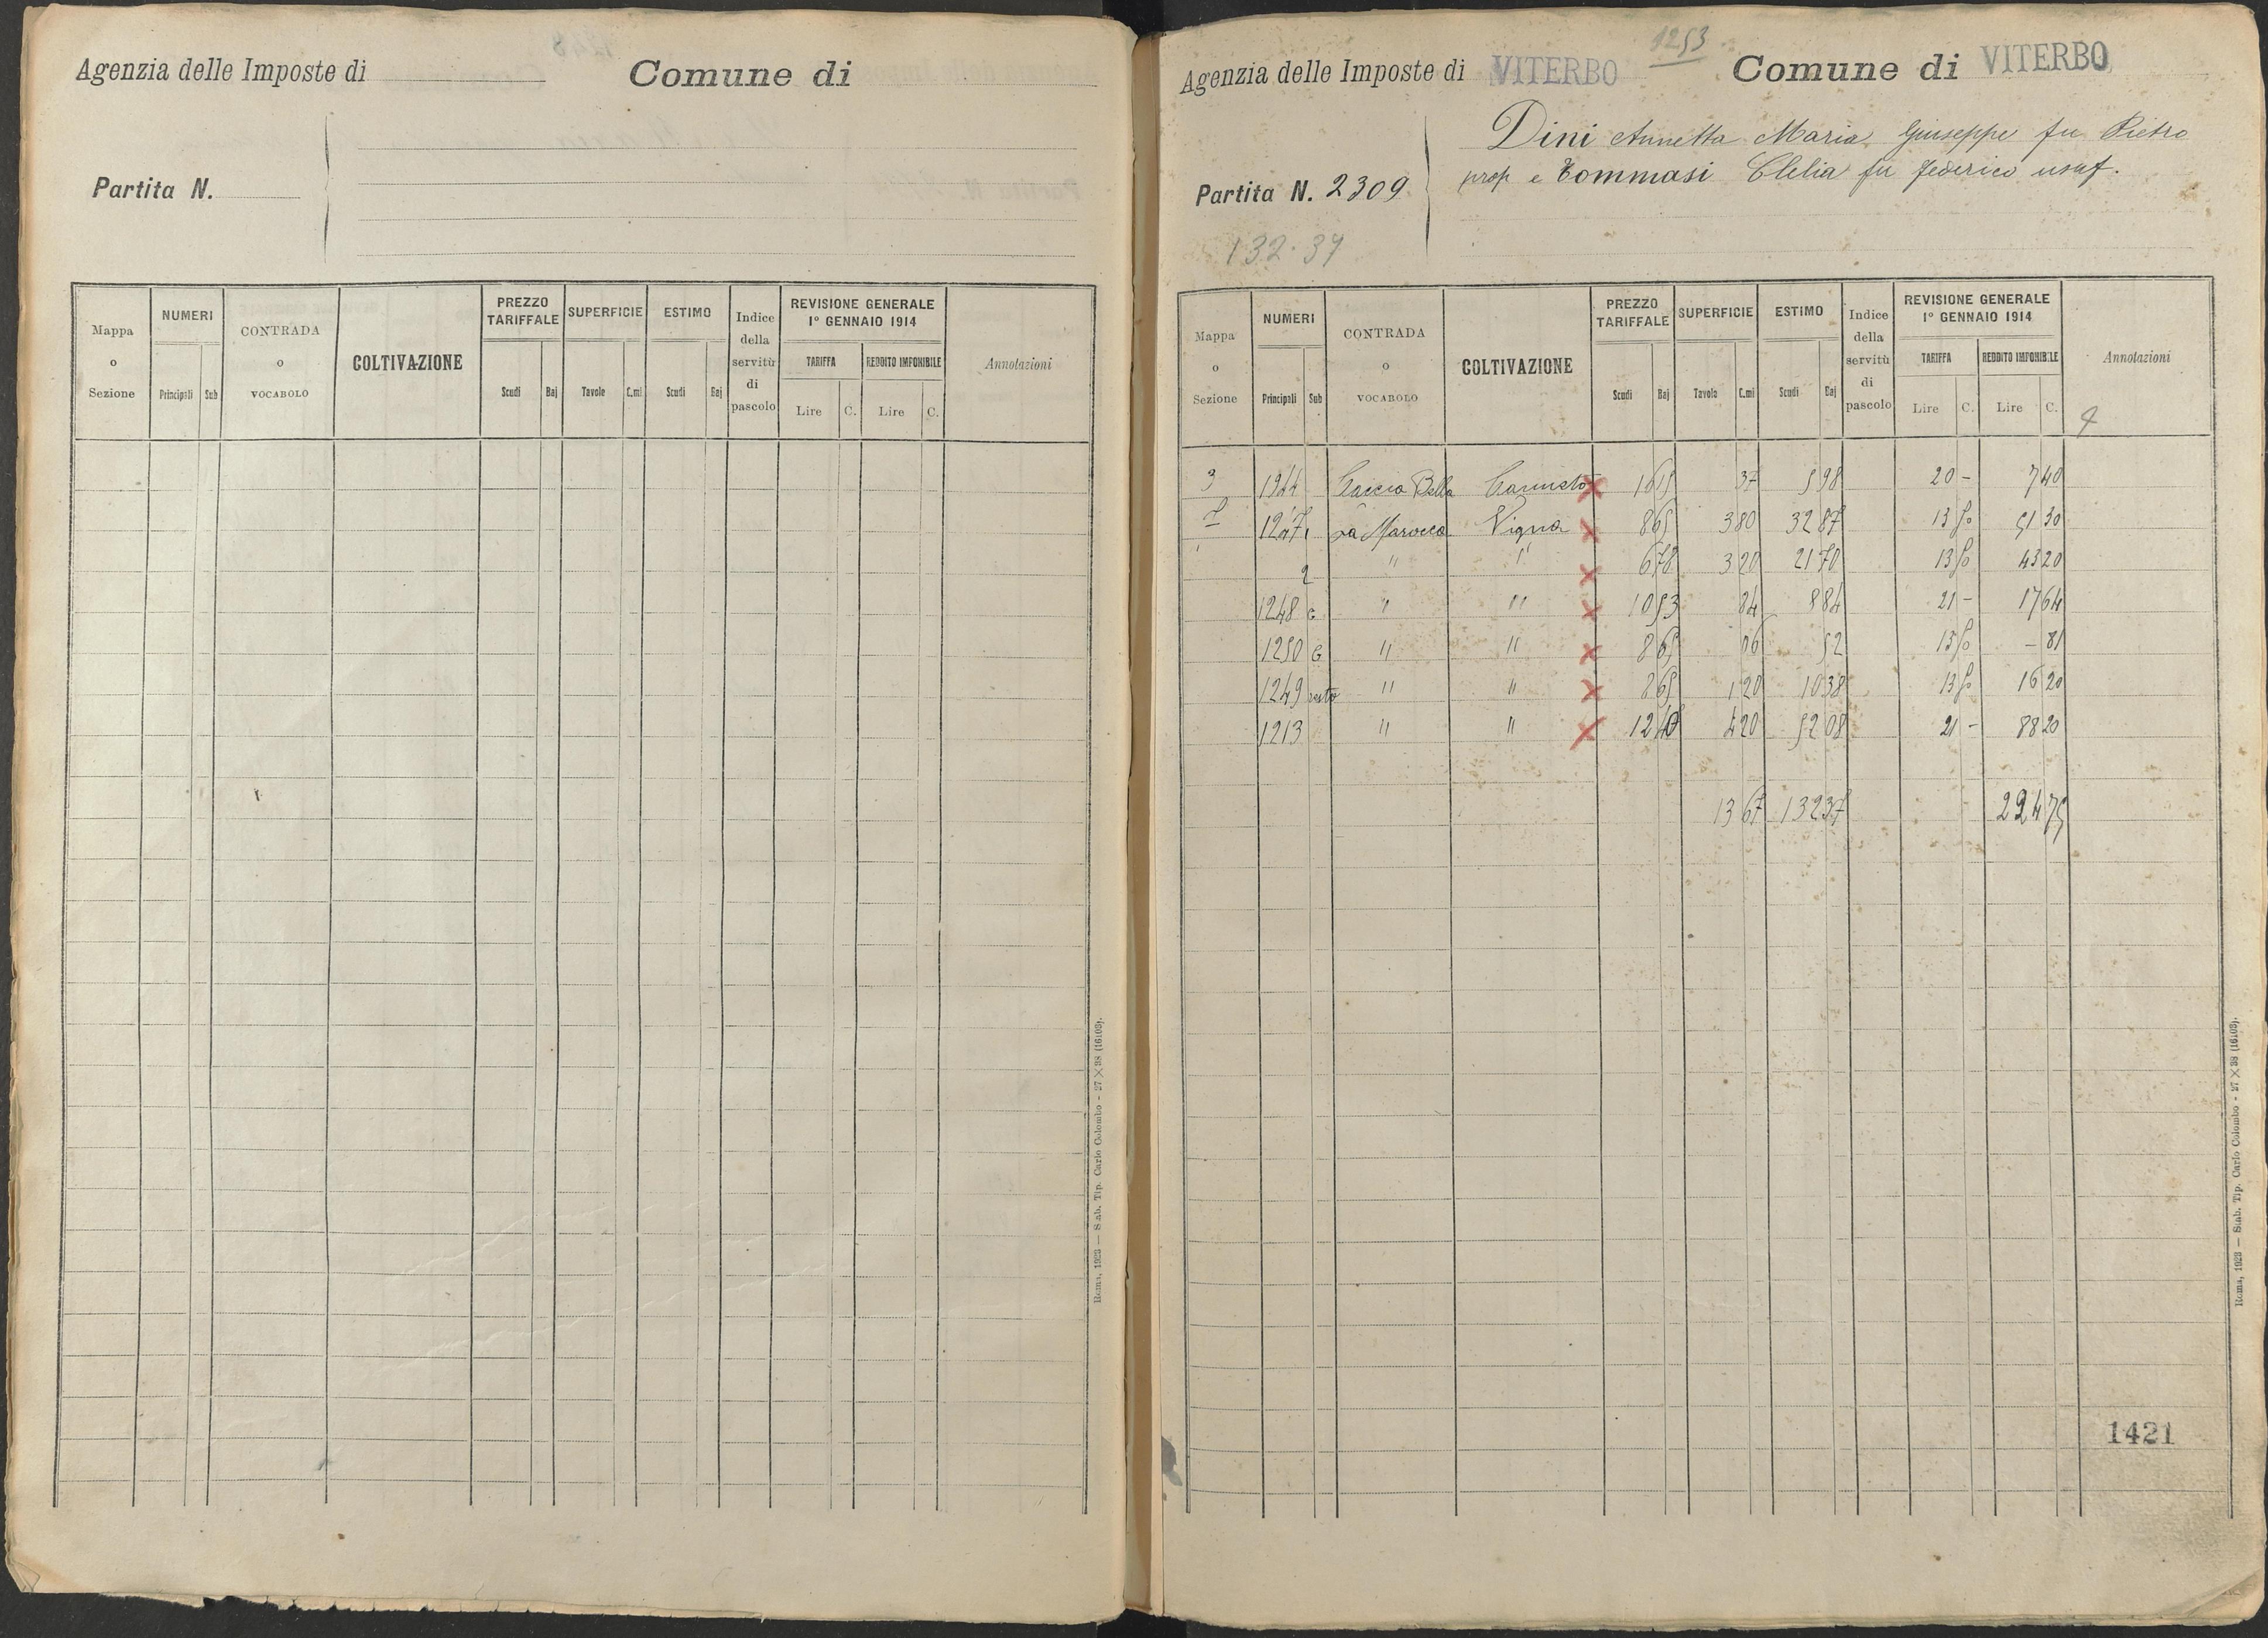 Agenzia delle Imposte di Comune di
Partita N.
Mappa o Sezione NUMERI Principali Sub CONTRADA o VOCABOLO COLTIVAZIONE PREZZO TARIFFALE Scudi Baj SUPERFICIE Tavole C.mi ESTIMO Scudi Baj Indice della servitù di pascolo REVISIONE GENERALE 1° GENNAIO 1914 TARIFFA Lire C. REDDITO IMPONIBILE Lire C. Annotazioni
Roma, 1923 — Stab. Tip. Carlo Colombo - 27 × 38 (16103).
1253
Agenzia delle Imposte di VITERBO Comune di VITERBO
Dini Annetta Maria Giuseppe fu Pietro
Partita N. 2309 prop e Tommasi Clelia fu Federico usuf.
132.37
Mappa o Sezione NUMERI Principali Sub CONTRADA o VOCABOLO COLTIVAZIONE PREZZO TARIFFALE Scudi Baj SUPERFICIE Tavole C.mi ESTIMO Scudi Baj Indice della servitù di pascolo REVISIONE GENERALE 1° GENNAIO 1914 TARIFFA Lire C. REDDITO IMPONIBILE Lire C. Annotazioni
3 1944 Caccia Bella Canneto x 16 15 37 5 98 20 - 7 40
7 1247 1 La Marocca Vigna x 8 65 3 80 32 87 13 50 51 30
2 " " x 6 78 3 20 21 70 13 50 43 20
1248 " " x 10 53 84 8 84 21 - 17 64
1250 " " x 8 65 06 52 13 50 - 81
1249 resto " " x 8 65 1 20 10 38 13 50 16 20
1213 " " x 12 40 4 20 52 08 21 - 88 20
13 67 132 37 224 75
1421
Roma, 1923 — Stab. Tip. Carlo Colombo - 27 × 38 (16103).